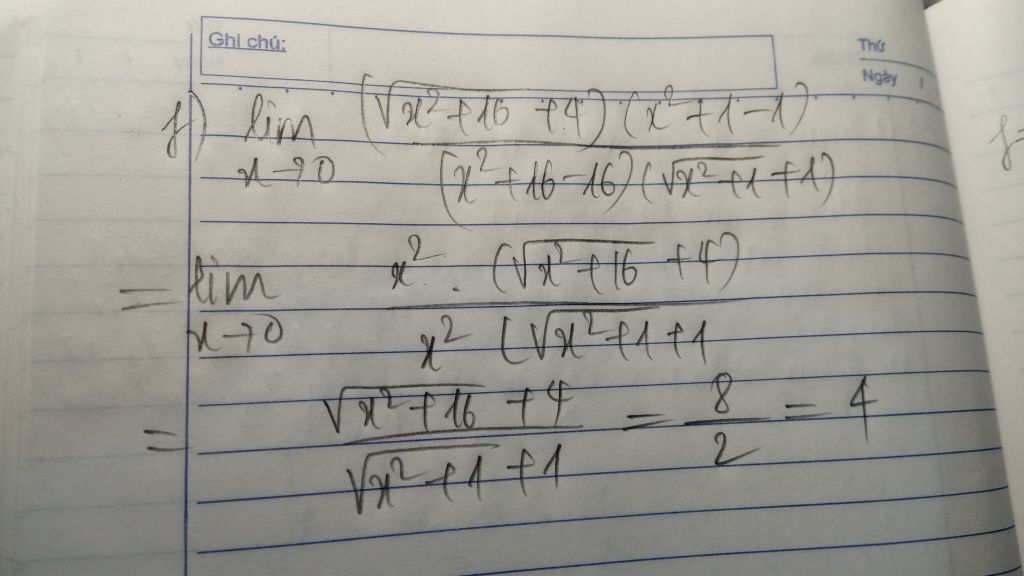 Ghi chú:
Thứ
Ngày
f) lim x→0 (√(x²+16) + 4)(x²+1-1) / (x²+16-16)(√(x²+1) + 1)
= lim x→0 x² . (√(x²+16) + 4) / x² (√(x²+1) + 1
= √(x²+16) + 4 / √(x²+1) + 1 = 8/2 = 4